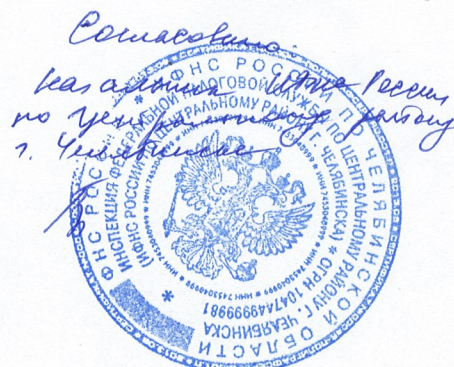 Согласовано
Начальник ИФНС России
по Центральному району
г. Челябинска
ФНС РОССИИ ПО ЧЕЛЯБИНСКОЙ ОБЛАСТИ
ИНСПЕКЦИЯ ФЕДЕРАЛЬНОЙ НАЛОГОВОЙ СЛУЖБЫ ПО ЦЕНТРАЛЬНОМУ РАЙОНУ Г. ЧЕЛЯБИНСКА
(ИФНС РОССИИ ПО ЦЕНТРАЛЬНОМУ РАЙОНУ Г. ЧЕЛЯБИНСКА) * ОГРН 1047449999981
* ИНН 7453040999 * ИНН 7453040999 * ИНН 7453040999